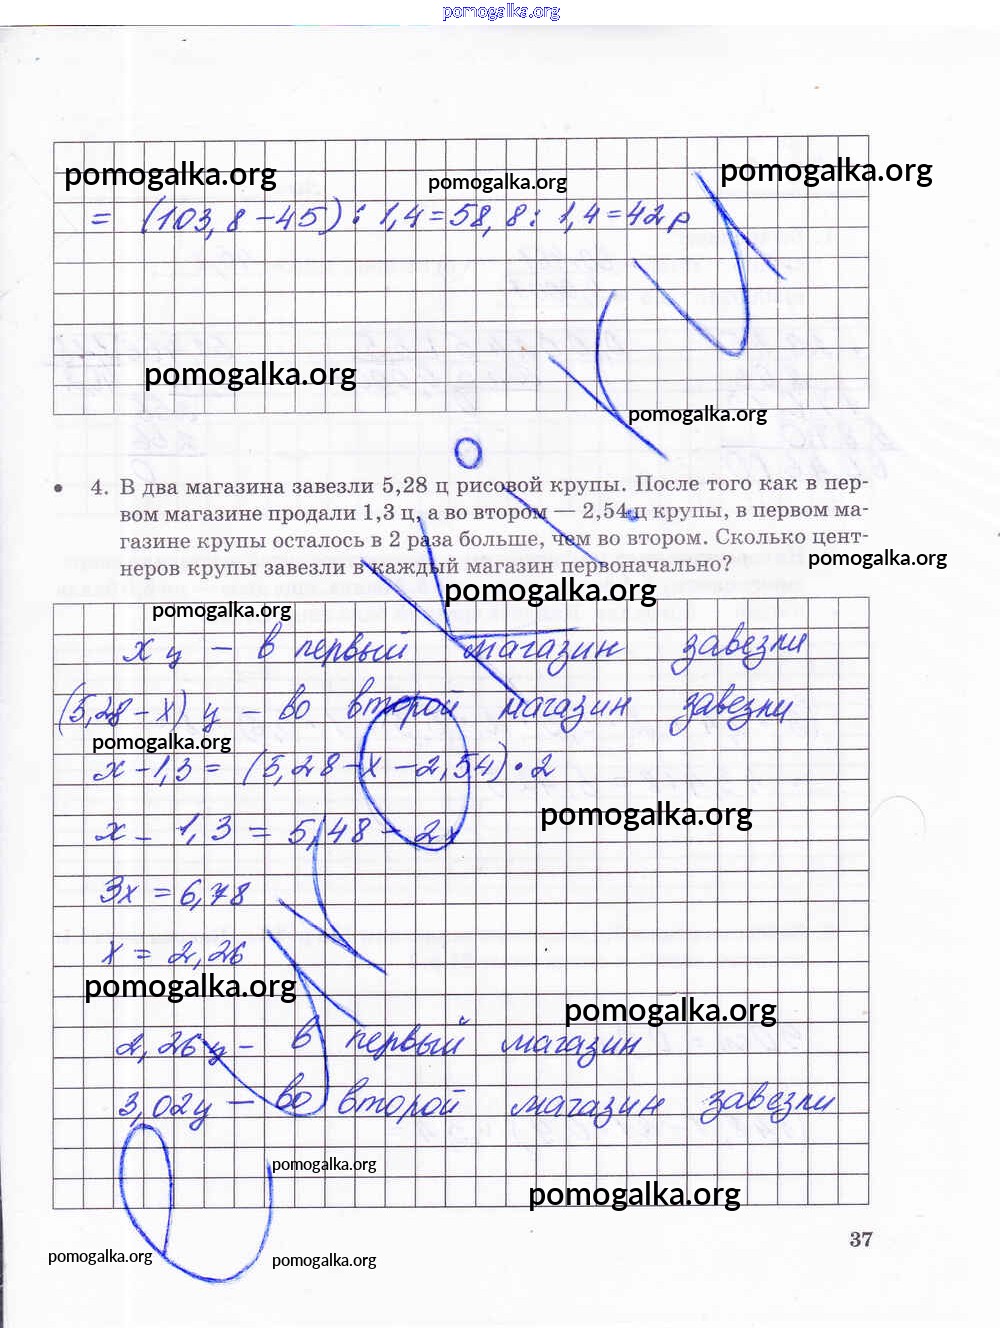 pomogalka.org
pomogalka.org pomogalka.org pomogalka.org
= (103,8-45) : 1,4=58,8: 1,4=42 р
pomogalka.org
pomogalka.org
• 4. В два магазина завезли 5,28 ц рисовой крупы. После того как в пер-
вом магазине продали 1,3 ц, а во втором — 2,54 ц крупы, в первом ма-
газине крупы осталось в 2 раза больше, чем во втором. Сколько цент-
неров крупы завезли в каждый магазин первоначально?
pomogalka.org
pomogalka.org
pomogalka.org
х ц - в первый магазин завезли
(5,28-х) ц - во второй магазин завезли
pomogalka.org
х-1,3= (5,28-х-2,54)•2
pomogalka.org
х-1,3=5,48-2х
3х=6,78
х=2,26
pomogalka.org
pomogalka.org
2,26ц- в первый магазин
3,02ц - во второй магазин завезли
pomogalka.org
pomogalka.org
37
pomogalka.org pomogalka.org